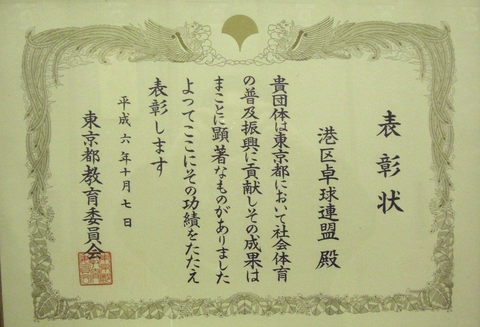 表彰状
港区卓球連盟 殿
貴団体は東京都において社会体育
の普及振興に貢献しその成果は
まことに顕著なものがありました
よってここにその功績をたたえ
表彰します
平成六年十月七日
東京都教育委員会